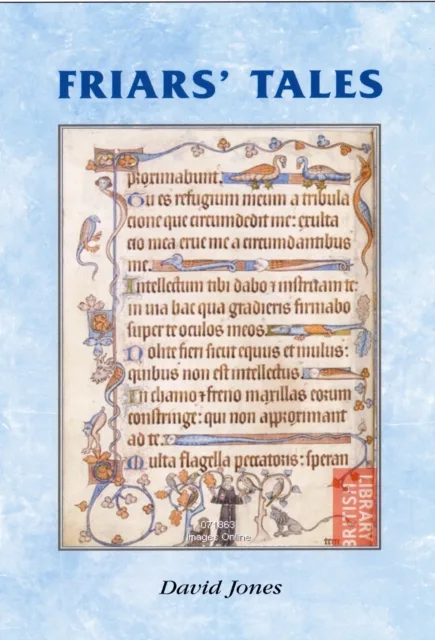 FRIARS' TALES
proximabunt.
Tu es refugium meum a tribula
cione que circumdedit me: exulta
cio mea erue me a circumdantibus
me.
Intellectum tibi dabo ⁊ instruam te:
in uia hac qua gradieris firmabo
super te oculos meos.
Nolite fieri sicut equus et mulus:
quibus non est intellectus
In chamo ⁊ freno maxillas eorum
constringe: qui non approximant
ad te.
Multa flagella peccatoris: speran
tem
071863
Images Online
BRITISH
LIBRARY
David Jones